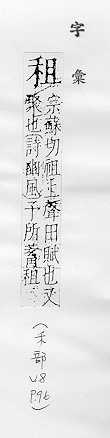 字彙
租
宗蘇切祖平聲田賦也又
聚也詩豳風予所蓄租
(禾部
V8